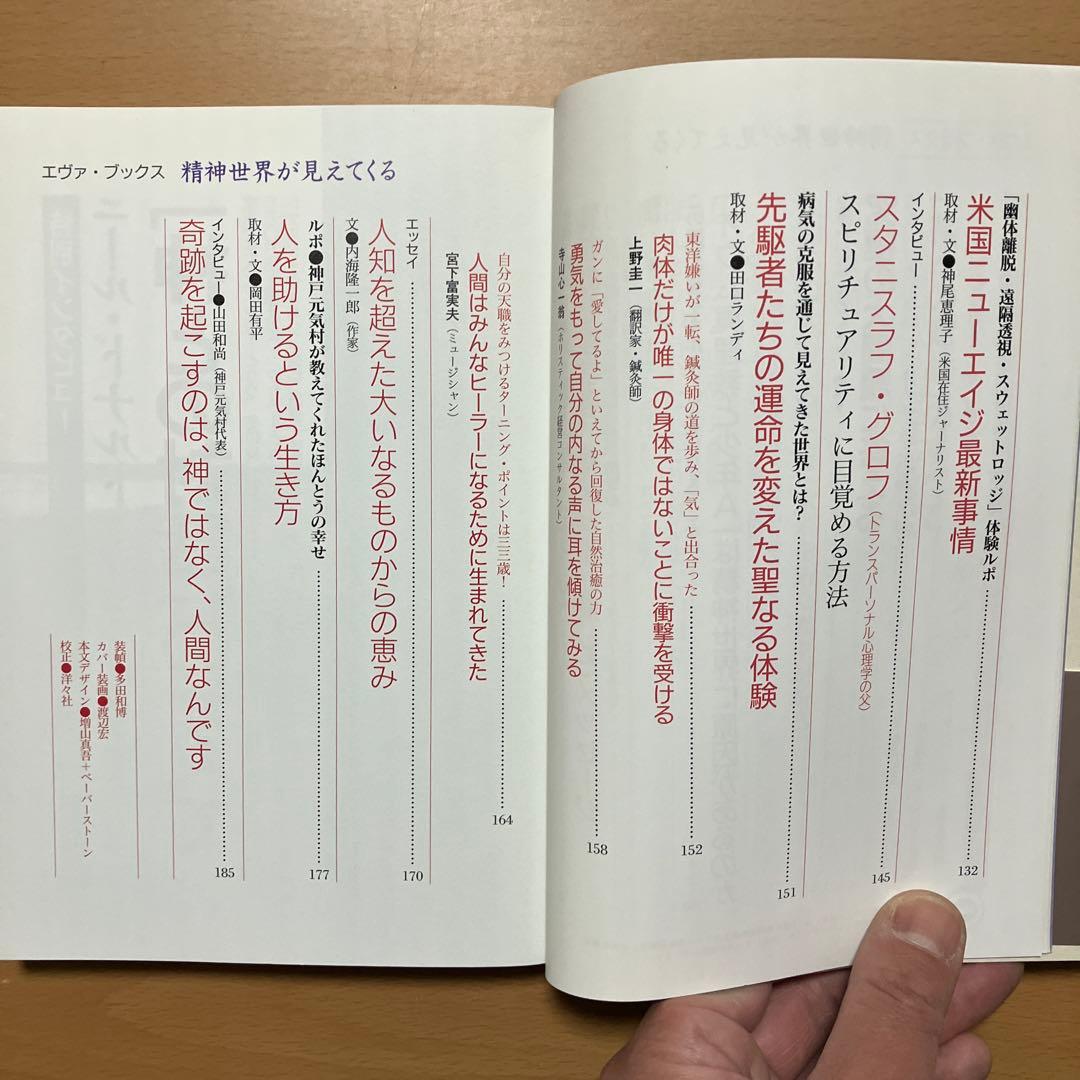 「幽体離脱・遠隔透視・スウェットロッジ」体験ルポ
米国ニューエイジ最新事情
132
取材・文●神尾恵理子（米国在住ジャーナリスト）
インタビュー
スタニスラフ・グロフ（トランスパーソナル心理学の父）
145
スピリチュアリティに目覚める方法
病気の克服を通じて見えてきた世界とは？
151
先駆者たちの運命を変えた聖なる体験
取材・文●田口ランディ
東洋嫌いが一転、鍼灸師の道を歩み、「気」と出合った
152
肉体だけが唯一の身体ではないことに衝撃を受ける
上野圭一（翻訳家・鍼灸師）
ガンに「愛してるよ」といえてから回復した自然治癒の力
158
勇気をもって自分の内なる声に耳を傾けてみる
寺山心一翁（ホリスティック経営コンサルタント）
エヴァ・ブックス 精神世界が見えてくる
自分の天職をみつけるターニング・ポイントは三三歳！
164
人間はみんなヒーラーになるために生まれてきた
宮下富実夫（ミュージシャン）
エッセイ
170
人知を超えた大いなるものからの恵み
文●内海隆一郎（作家）
ルポ●神戸元気村が教えてくれたほんとうの幸せ
177
人を助けるという生き方
取材・文●岡田有平
インタビュー●山田和尚（神戸元気村代表）
185
奇跡を起こすのは、神ではなく、人間なんです
装幀●多田和博
カバー装画●渡辺宏
本文デザイン●増山真吾＋ペーパーストーン
校正●洋々社